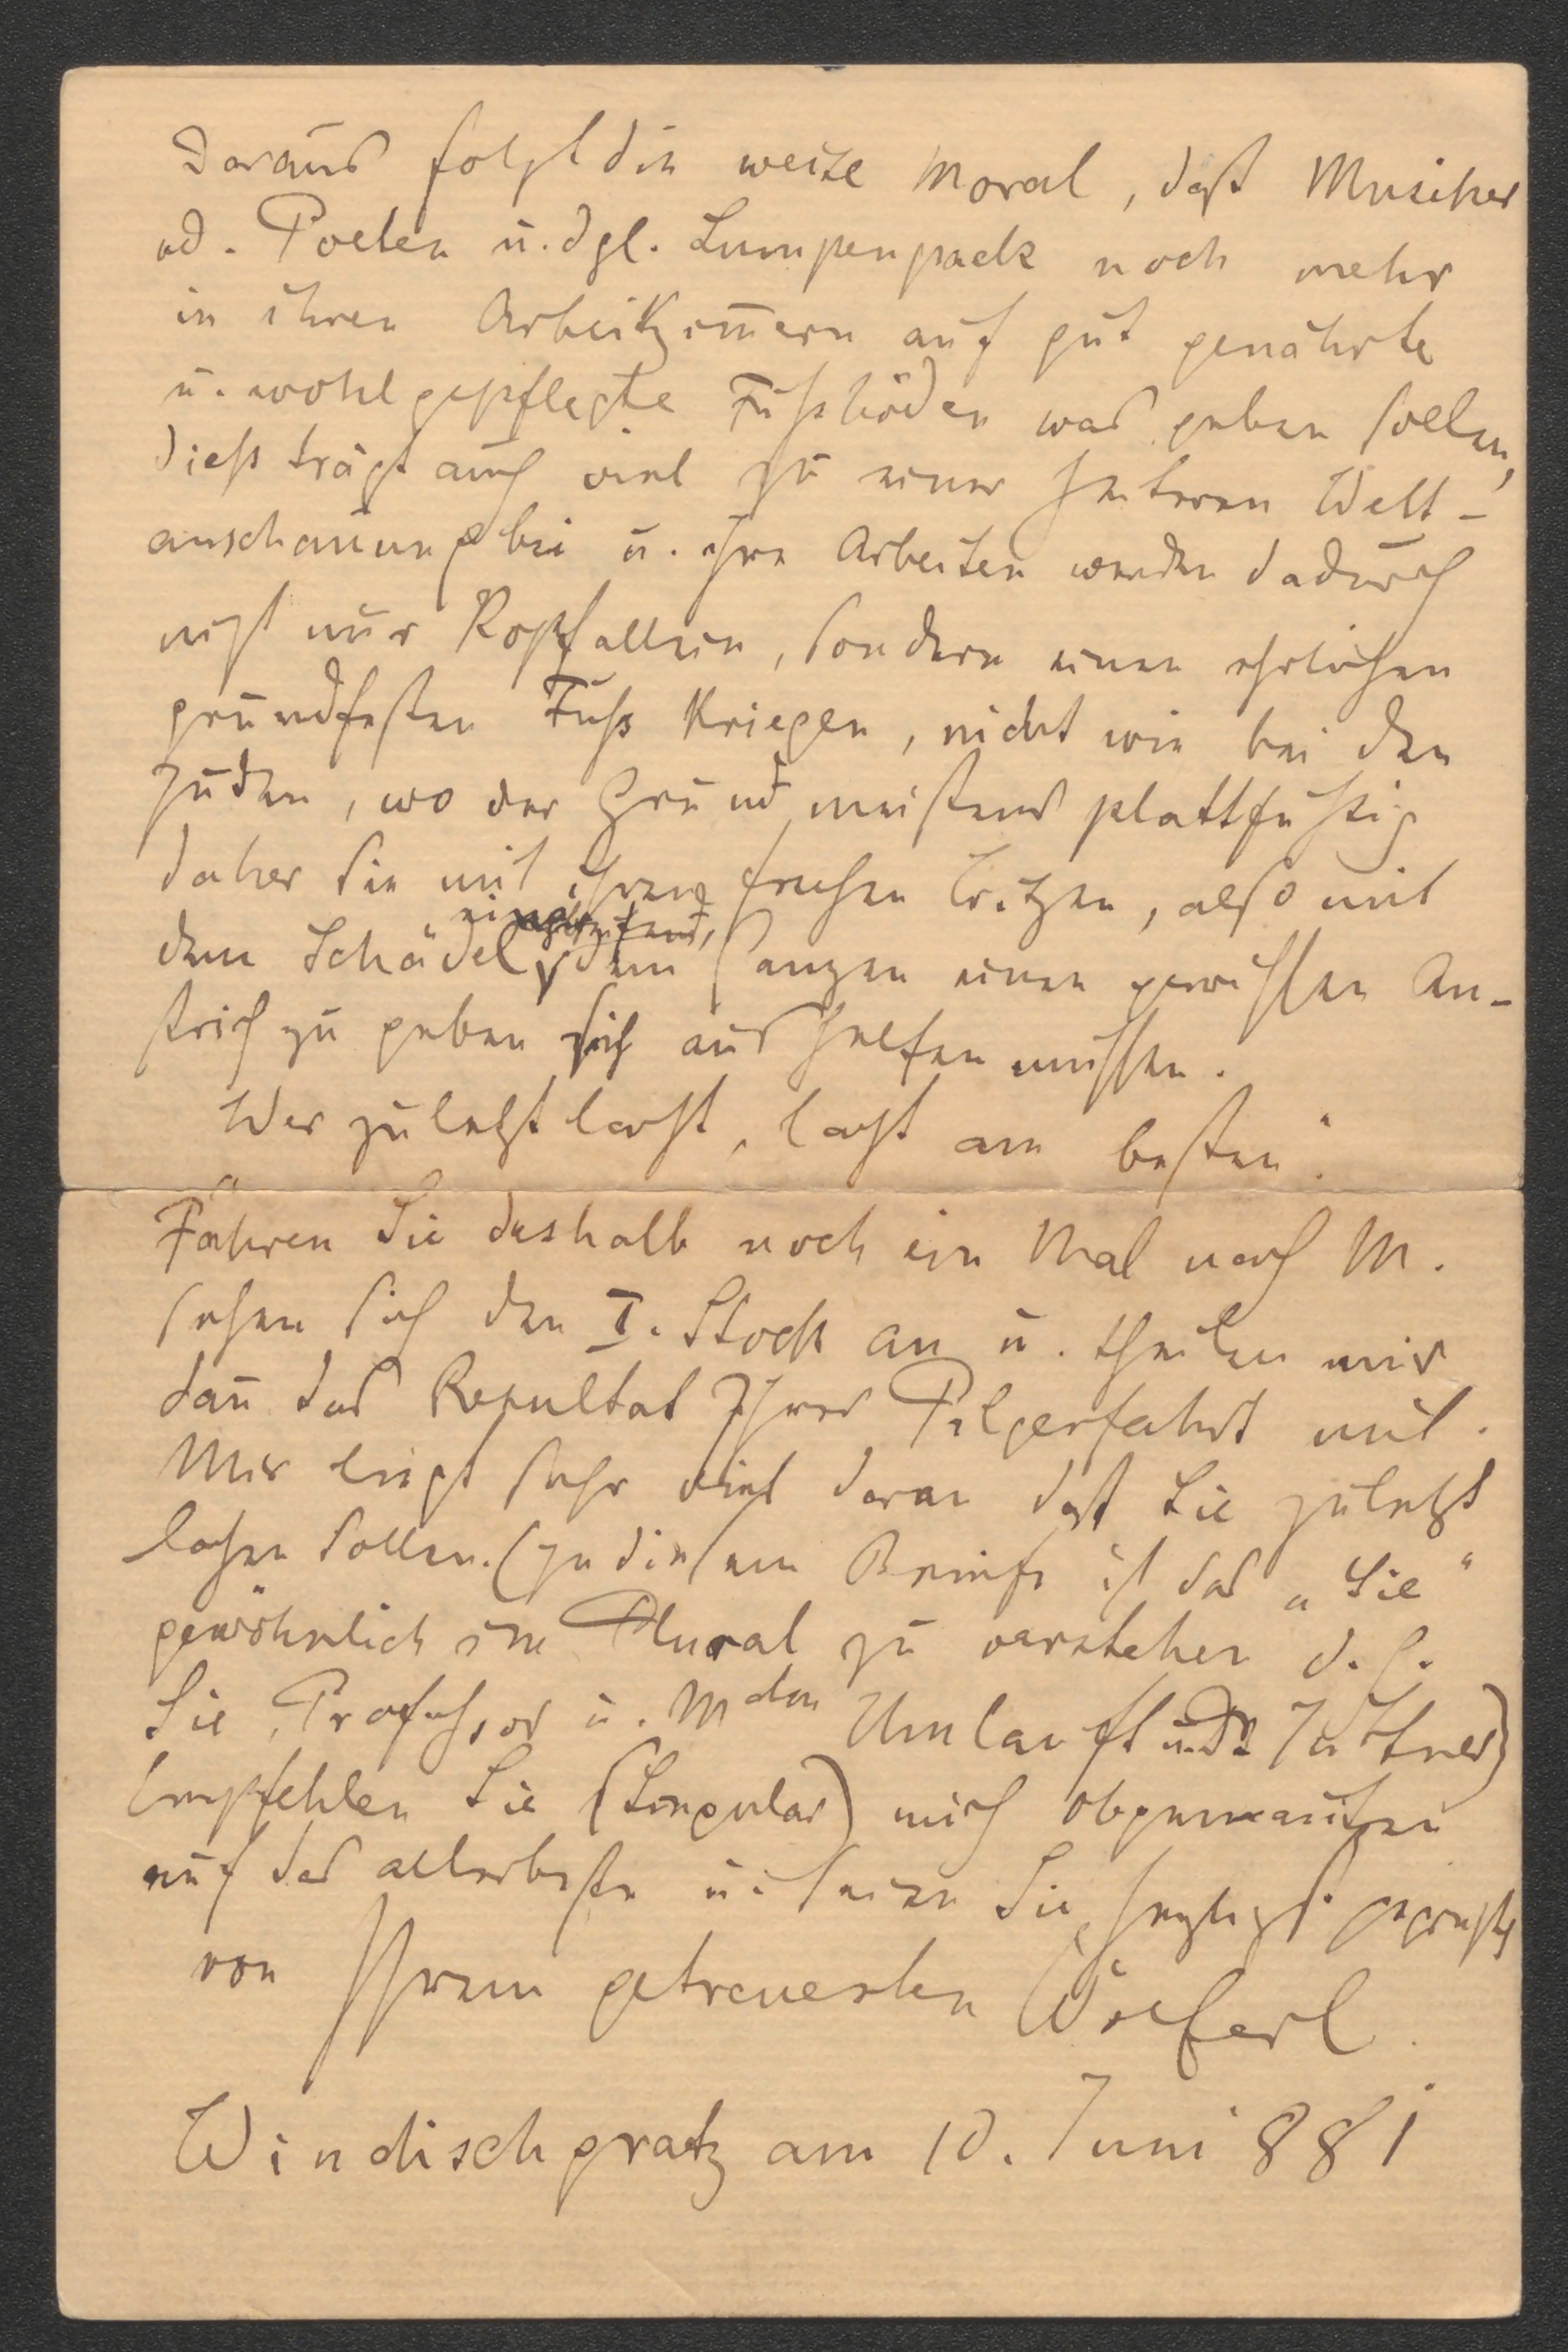 Daraus folgt die weise Moral, daß Musiker
od. Poeten u. dgl. Lumpenpack noch mehr
in ihren Arbeitzim̄ern auf gut genährte
u. wohlgepflegte Fußböden was geben sollen,
dieß trägt auch viel zu einer heiteren Welt-
anschauung bei u. ihre Arbeiten werden dadurch
nicht nur Kopf allein, sondern einen ehrlichen
grundfesten Fuß kriegen, nicht wie bei den
Juden, wo der Grund meistens plattfüßig
daher sie mit ihren frechen Witzen, also mit
dem Schädel dem Ganzen einen gewissen An-
strich zu geben sich aushelfen müssen.
Wer zuletzt lacht, lacht am besten".
Fahren Sie deshalb noch ein Mal nach M.
sehen sich den I. Stock an u. theilen mir
dan̄ das Resultat Ihrer Pilgerfahrt mit.
Mir liegt sehr viel daran daß Sie zuletzt
lachen sollen. (In diesem Briefe ist das „Sie"
gewöhnlich im Plural zu verstehen d. h.
Sie, Professor u. Mdm Umlauft u. Dr
Empfehlen Sie (Singular) mich
auf das allerbeste u. seien Sie herzlichst gegrüßt
von Ihrem getreuesten Wölferl.
Windischgratz am 10. Juni 881